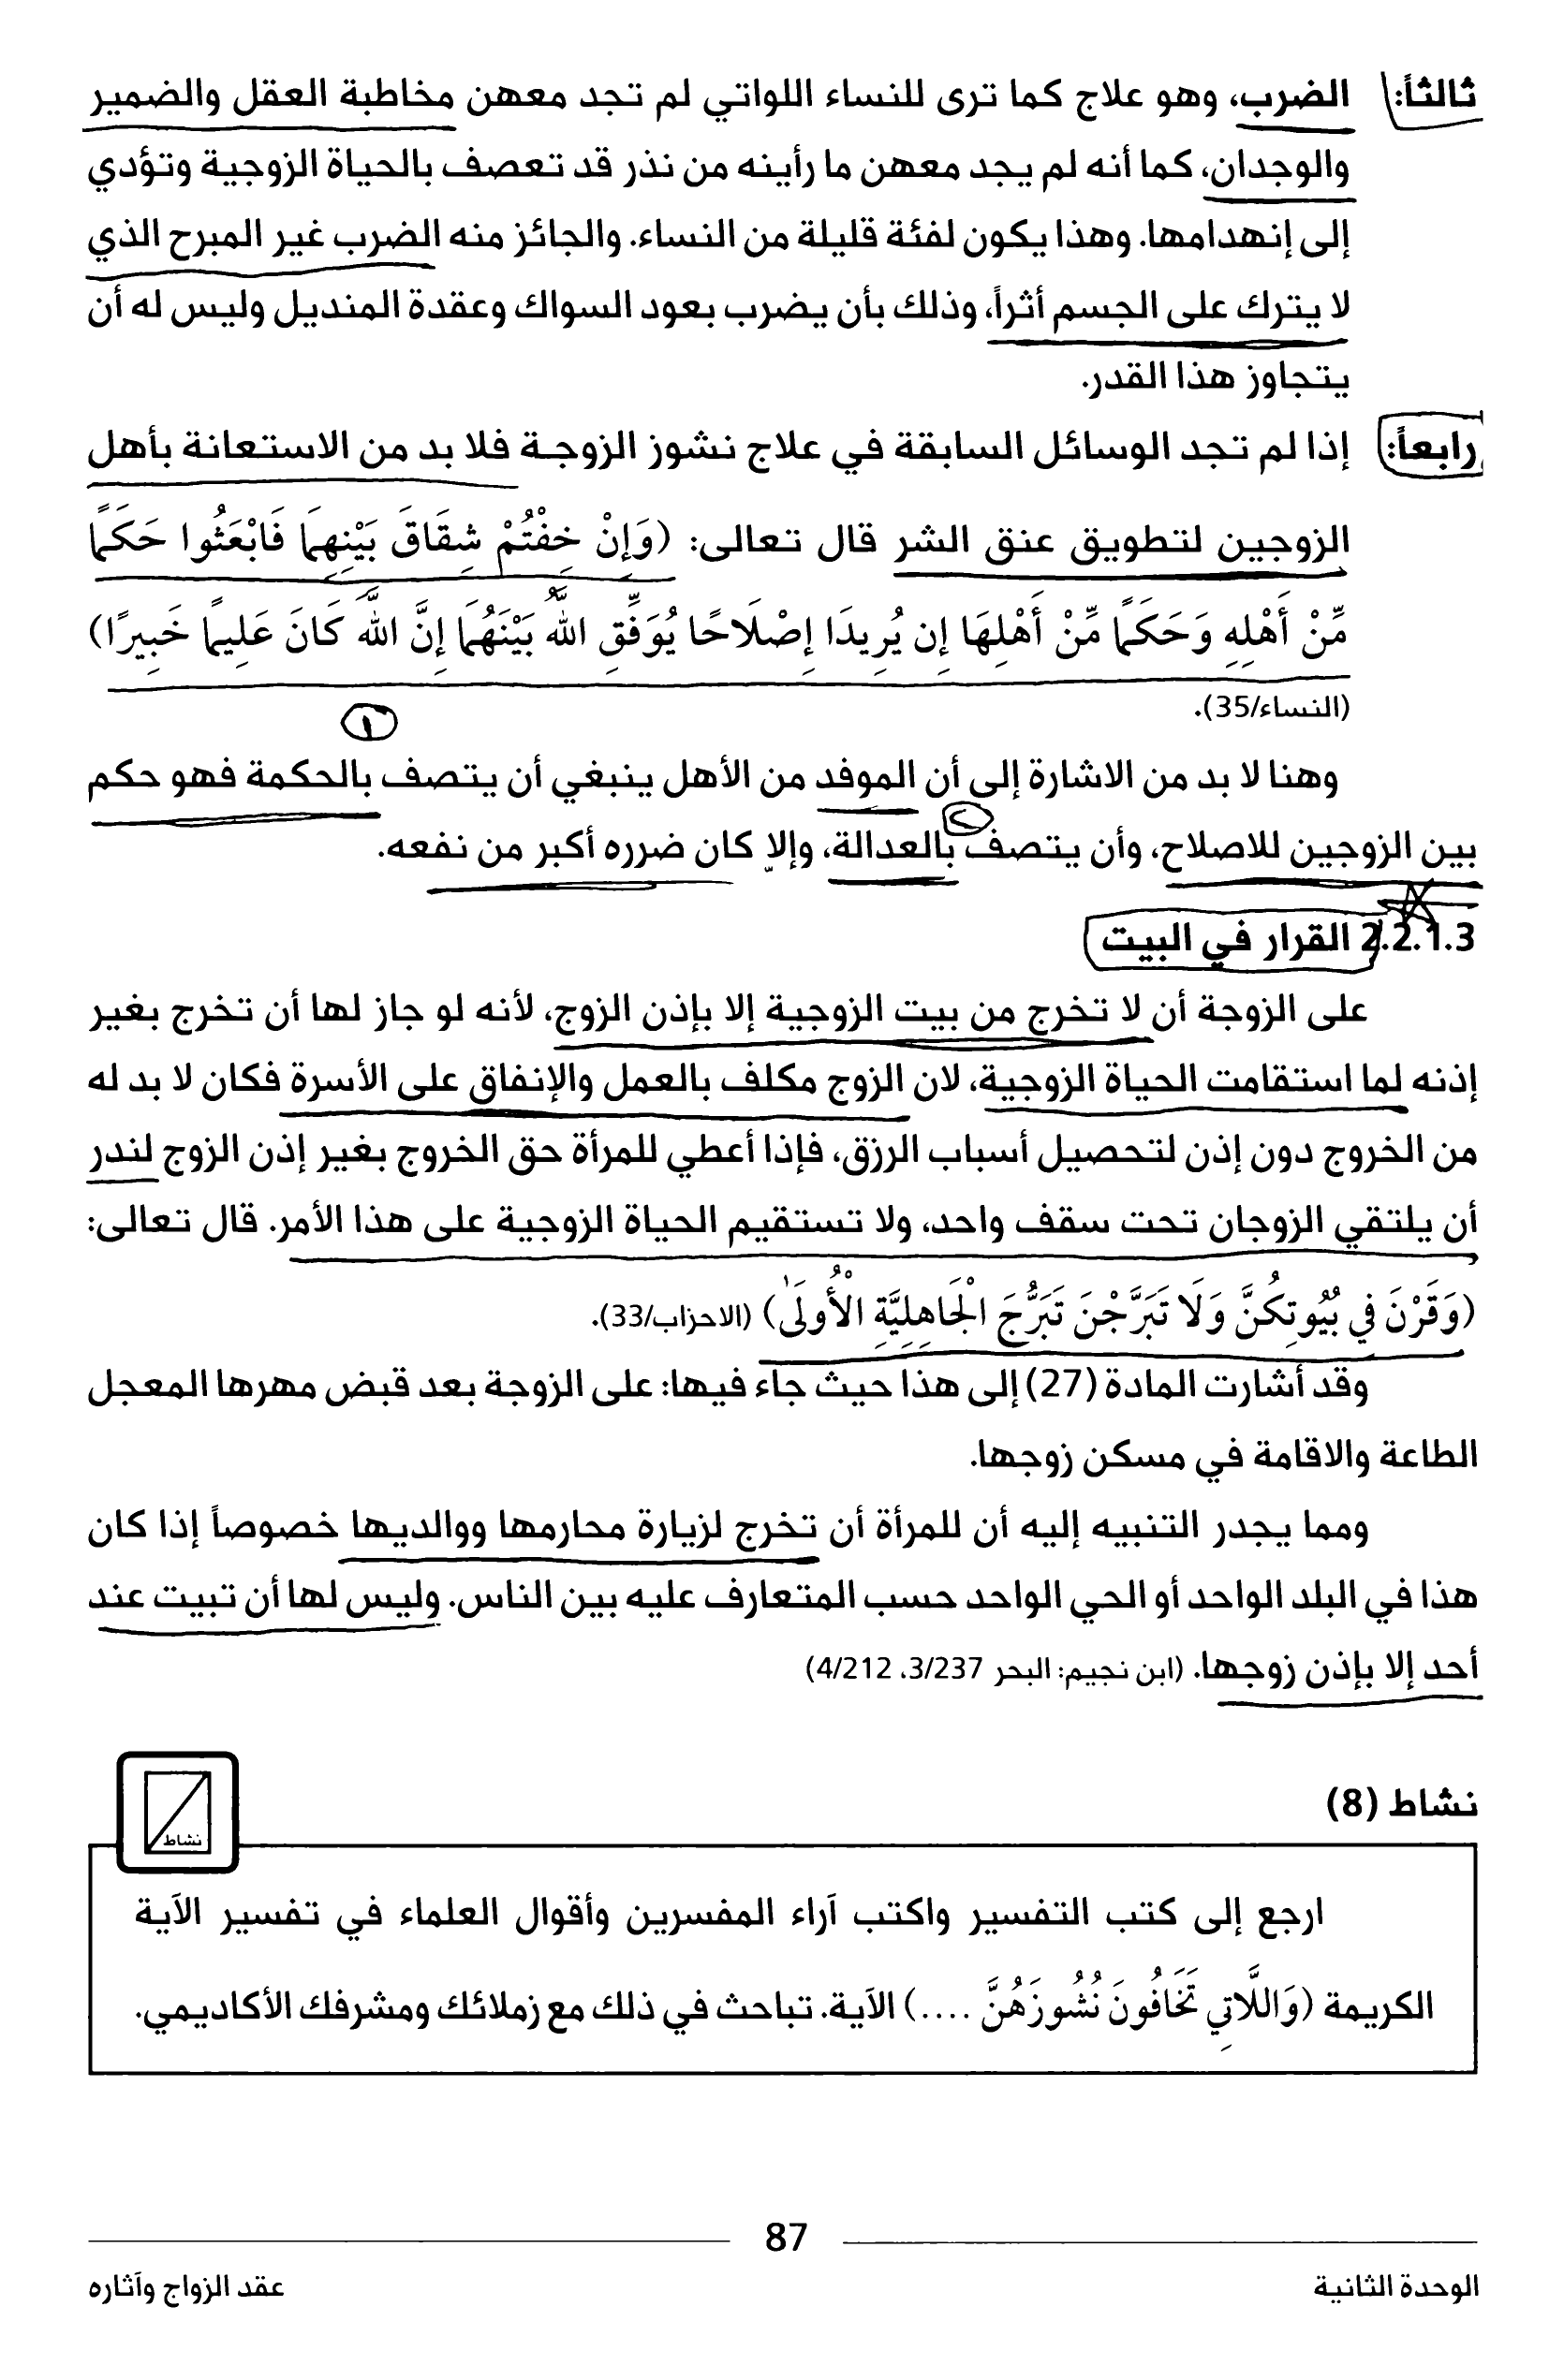 ثالثاً: الضرب، وهو علاج كما ترى للنساء اللواتي لم تجد معهن مخاطبة العقل والضمير
والوجدان، كما أنه لم يجد معهن ما رأينه من نذر قد تعصف بالحياة الزوجية وتؤدي
إلى إنهدامها. وهذا يكون لفئة قليلة من النساء. والجائز منه الضرب غير المبرح الذي
لا يترك على الجسم أثراً، وذلك بأن يضرب بعود السواك وعقدة المنديل وليس له أن
يتجاوز هذا القدر.
رابعاً: إذا لم تجد الوسائل السابقة في علاج نشوز الزوجة فلا بد من الاستعانة بأهل
الزوجين لتطويق عنق الشر قال تعالى: (وَإِنْ خِفْتُمْ شِقَاقَ بَيْنِهِمَا فَابْعَثُوا حَكَمًا
مِّنْ أَهْلِهِ وَحَكَمًا مِّنْ أَهْلِهَا إِن يُرِيدَا إِصْلَاحًا يُوَفِّقِ اللَّهُ بَيْنَهُمَا إِنَّ اللَّهَ كَانَ عَلِيمًا خَبِيرًا)
(النساء/35).
١
وهنا لا بد من الاشارة إلى أن الموفد من الأهل ينبغي أن يتصف بالحكمة فهو حكم
٢
بين الزوجين للاصلاح، وأن يتصف بالعدالة، وإلا كان ضرره أكبر من نفعه.
2.2.1.3 القرار في البيت
على الزوجة أن لا تخرج من بيت الزوجية إلا بإذن الزوج، لأنه لو جاز لها أن تخرج بغير
إذنه لما استقامت الحياة الزوجية، لان الزوج مكلف بالعمل والإنفاق على الأسرة فكان لا بد له
من الخروج دون إذن لتحصيل أسباب الرزق، فإذا أعطي للمرأة حق الخروج بغير إذن الزوج لندر
أن يلتقي الزوجان تحت سقف واحد، ولا تستقيم الحياة الزوجية على هذا الأمر. قال تعالى:
(وَقَرْنَ فِي بُيُوتِكُنَّ وَلَا تَبَرَّجْنَ تَبَرُّجَ الْجَاهِلِيَّةِ الْأُولَىٰ) (الاحزاب/33).
وقد أشارت المادة (27) إلى هذا حيث جاء فيها: على الزوجة بعد قبض مهرها المعجل
الطاعة والاقامة في مسكن زوجها.
ومما يجدر التنبيه إليه أن للمرأة أن تخرج لزيارة محارمها ووالديها خصوصاً إذا كان
هذا في البلد الواحد أو الحي الواحد حسب المتعارف عليه بين الناس. وليس لها أن تبيت عند
أحد إلا بإذن زوجها. (ابن نجيم: البحر 3/237، 4/212)
نشاط (8)
نشاط
ارجع إلى كتب التفسير واكتب آراء المفسرين وأقوال العلماء في تفسير الآية
الكريمة (وَاللَّاتِي تَخَافُونَ نُشُوزَهُنَّ ....) الآية. تباحث في ذلك مع زملائك ومشرفك الأكاديمي.
87
الوحدة الثانية
عقد الزواج وآثاره